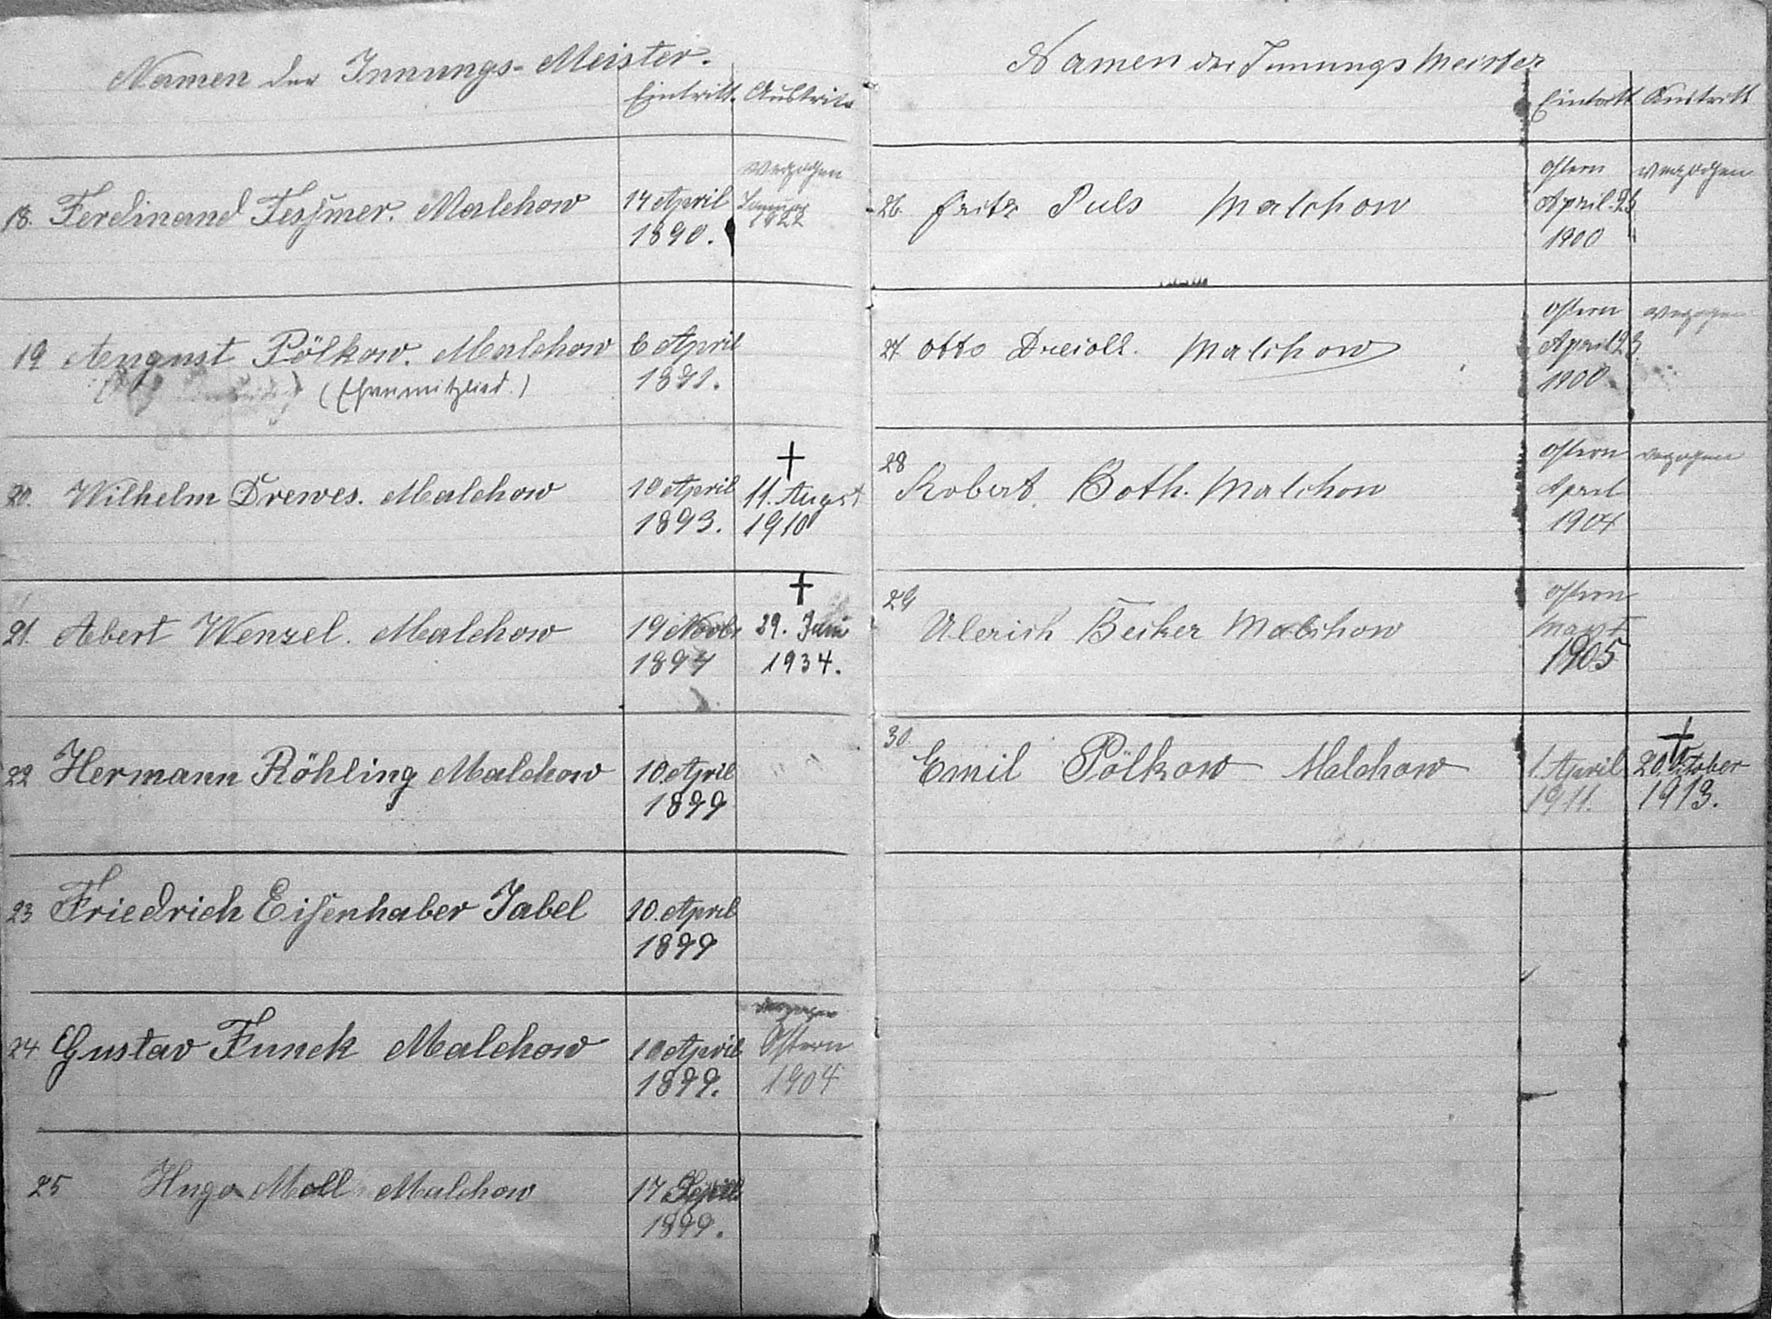 Namen der Innungs-Meister.
Eintritt. Austritt
18. Ferdinand Teßmer. Malchow 17 April 1890. verzogen Januar 1922
19 August Pölkow. Malchow 6 April 1891.
(Ehrenmitglied.)
20. Wilhelm Drewes. Malchow 10 April 1893. † 11. Augst 1910
21. Abert Wenzel. Malchow 19 Novbr 1897 † 29. Juni 1934.
22 Hermann Röhling Malchow 10 April 1899
23 Friedrich Eisenhaber Jabel 10. April 1899
24 Gustav Funck Malchow 10 April 1899. verzogen Ostern 1904
25 Hugo Moll Malchow 17 1899.
Namen der Innungs Meister
Eintritt Austritt
26. Fritz Puls Malchow Ostern April 1900 verzogen
27. Otto Malchow Ostern April 1900 verzogen
28 Robert Both. Malchow Ostern April 1904 verzogen
29 Ulerich Becker Malchow Ostern 1905
30. Emil Pölkow Malchow 1. April 1911. † 20. October 1913.